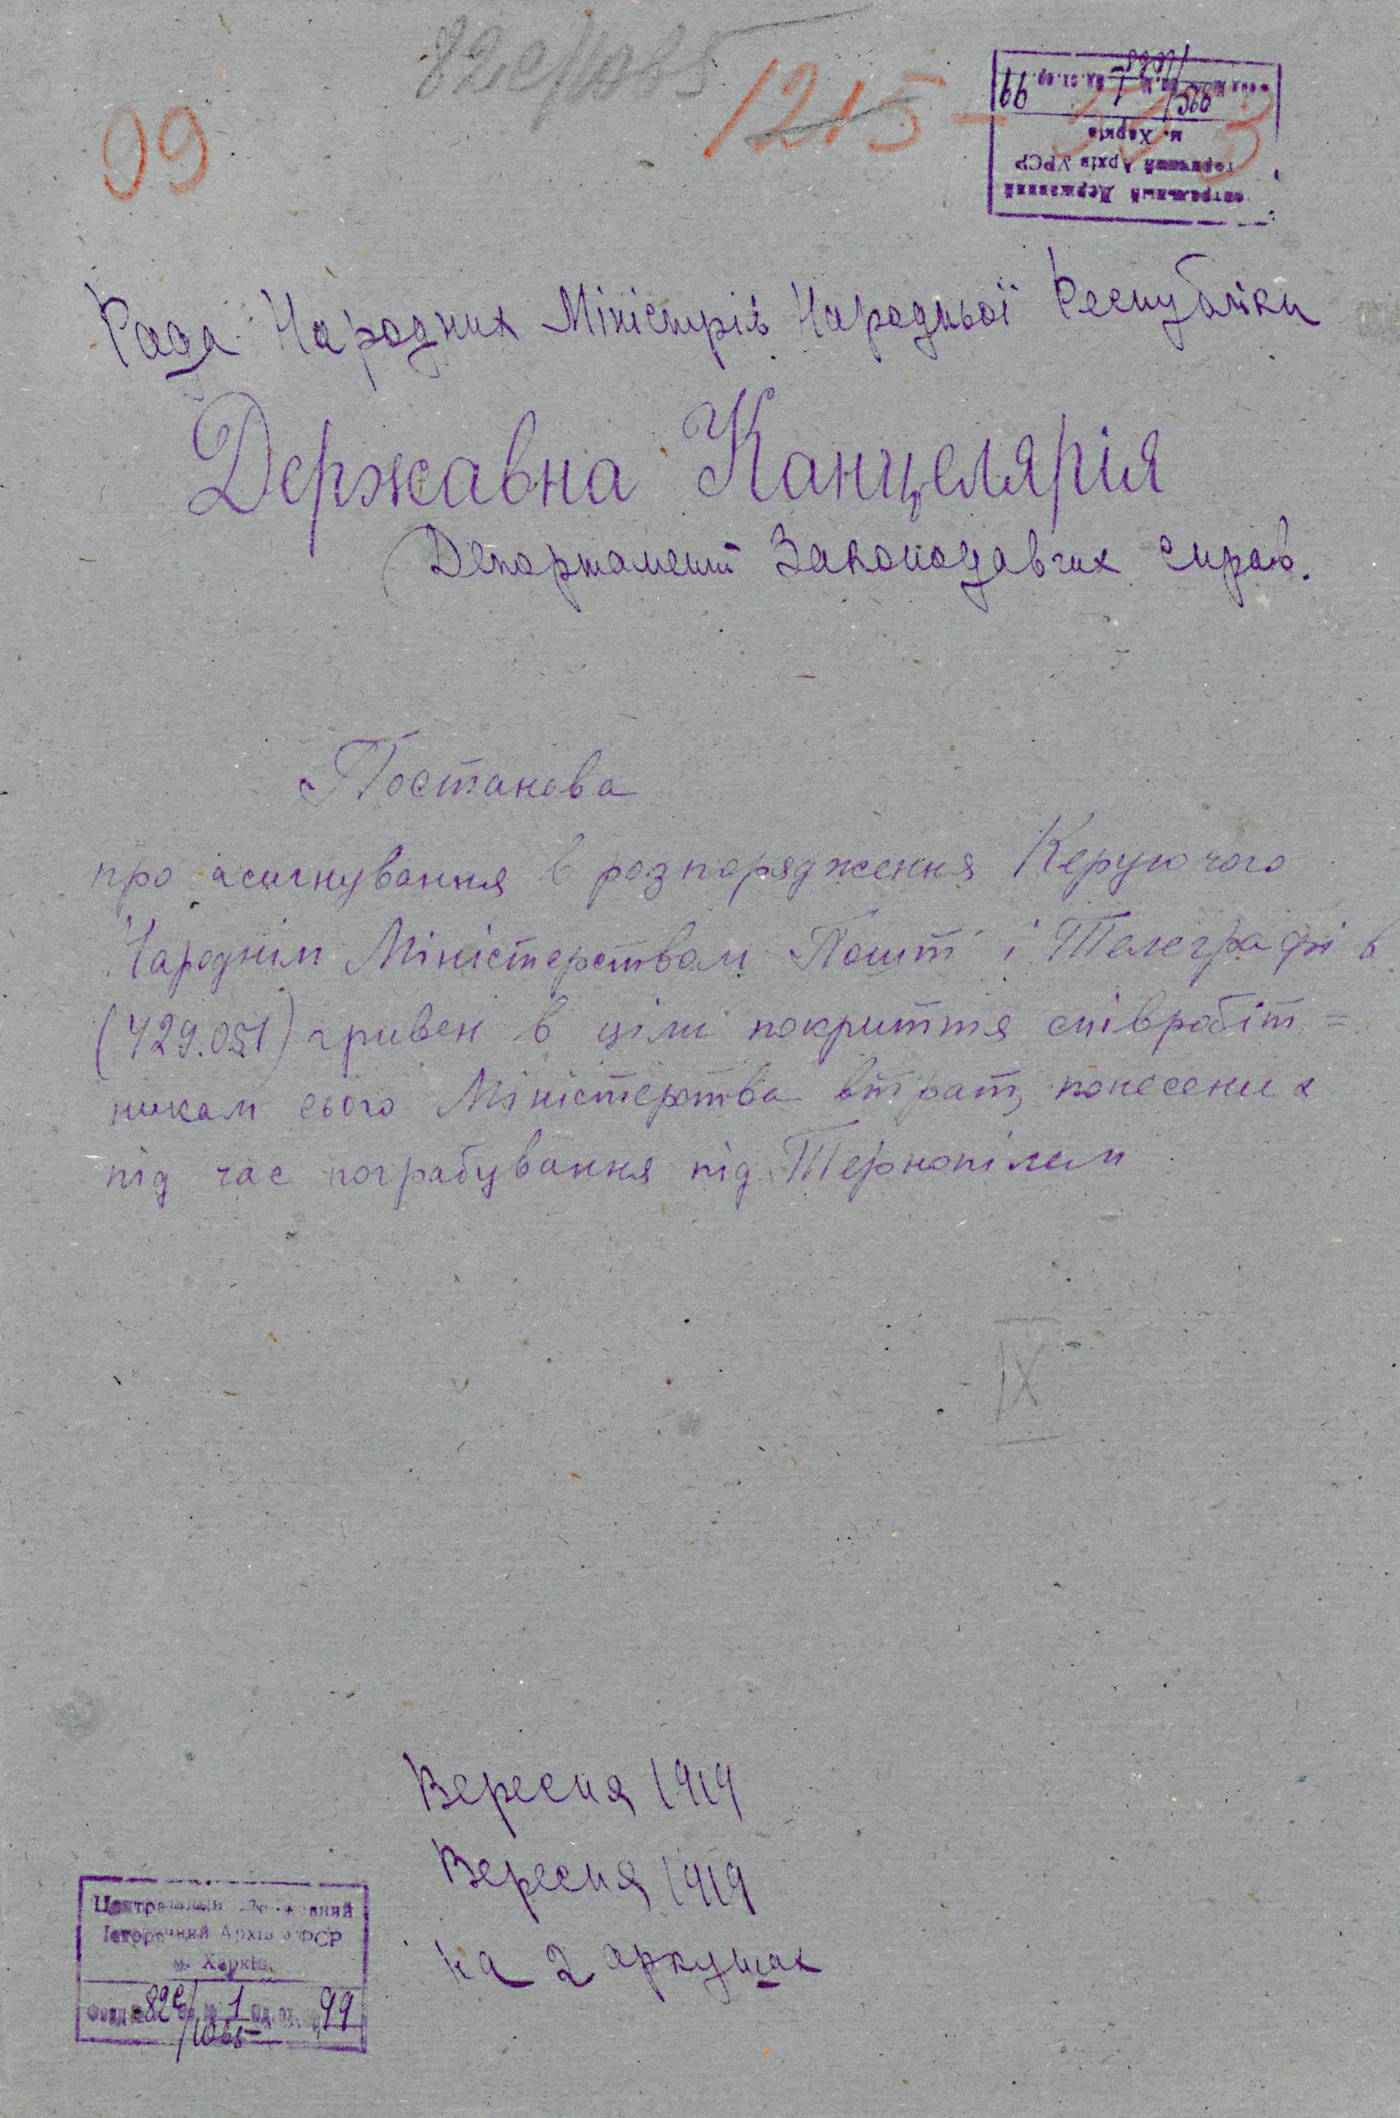 82с/1065
99
1215 -
Центральный Державний
Історичний Архів УРСР
м. Харків
99
Рада Народних Міністрів Народньої Республіки
Державна Канцелярія
Департамент Законодавчих справ.
Постанова
про асигнування в розпорядження Керуючого
Народнім Міністерством Пошт і Телеграфів
(429.051) гривен в ціли покриття співробіт=
никам сього Міністерства втрат, понесених
під час пограбування під Тернополем
IX
Вересня 1919
Вересня 1919
на 2 аркушах
Центральний Державний
Історичний Архів УРСР
м. Харків
Фонд № 82с/1065 оп. № 1 од. зх. 99